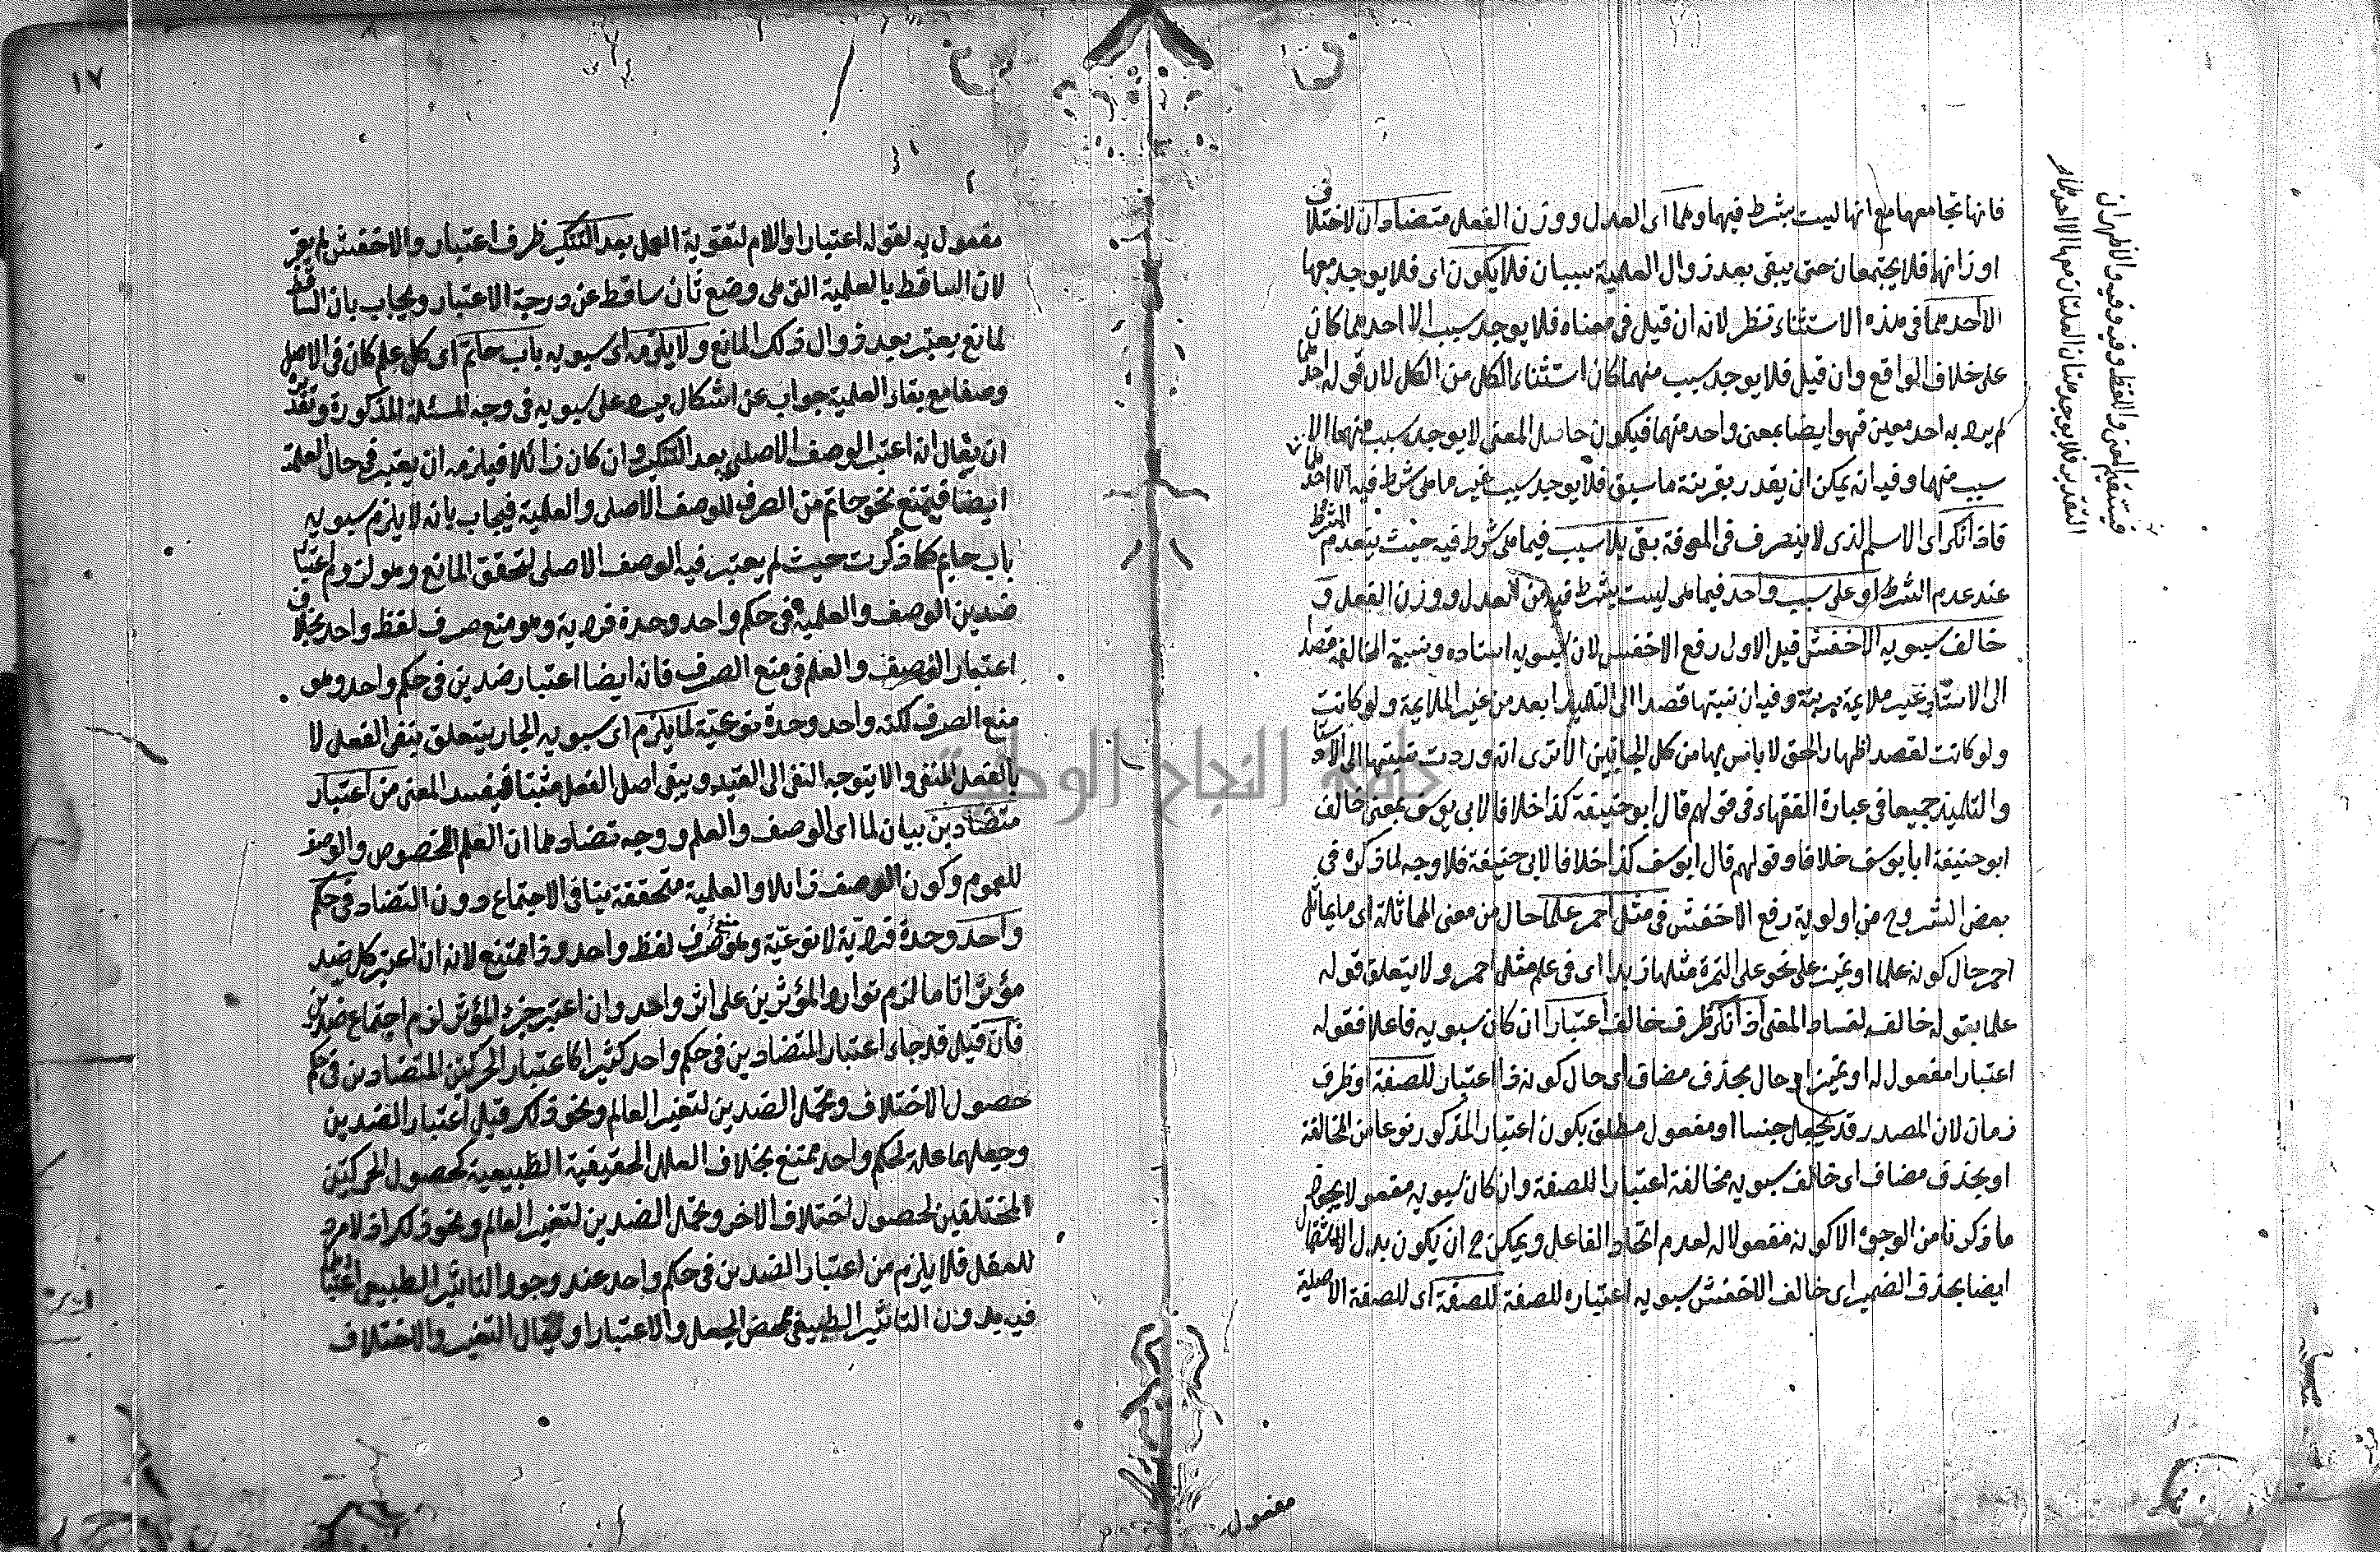 فانها تجامعهما مع انها ليست بشرط فيهما وهما اى العدل ووزن الفعل متضادان لاختلاف
اوزانهما فلا يجتمعان حتى يبقى بعد زوال العلمية سببان فلا يكون اى فلا يوجد معها
الا احدهما فى هذه الاستثناء نظر لانه ان قيل فى معناه فلا يوجد سبب الا احدهما كان
على خلاف الواقع وان قيل فلا يوجد سبب منهما كان استثناء الكل من الكل لان قوله احدهما
لم يرد به احد معين فهو ايضا بمعنى واحد منهما فيكون حاصل المعنى لا يوجد سبب منهما الا
سبب منهما وفيه انه يمكن ان يقدر بقرينة ما سبق فلا يوجد سبب غير ما هى شرط فيه الا احدهما
فاذا نكر اى الاسم الذى لا ينصرف فى المعرفة بقى بلا سبب فيما هى شرط فيه حيث ينعدم المشروط
عند عدم الشرط او على سبب واحد فيما هى ليست بشرط فيه من العدل ووزن الفعل و
خالف سيبويه الاخفش قيل الاول رفع الاخفش لان سيبويه استاده ونسبة المخالفة قصدا
الى الاستاد غير ملايمة مرية وفيه ان نسبتها قصدا الى التلميذ ابعد من غير الملايمة ولو كانت
ولو كانت لقصد اظهار الحق لا باس بها من كل الجانبين الا ترى انه وردت نسبتها الى الاستاد
والتلميذ جميعا فى عبارة الفقهاء فى قولهم قال ابو حنيفة كذا خلافا لابى يوسف بمعنى خالف
ابو حنيفة ابا يوسف خلافا وقولهم قال ابو يوسف كذا خلافا لابى حنيفة فلا وجه لما ذكره فى
بعض الشروح من اولوية رفع الاخفش فى مثل احمر علما حال من معنى المماثلة اى ما يماثل
احمر حال كونه علما او تمييز على نحو على التمرة مثلها زبدا اى فى علم مثل احمر ولا يتعلق قوله
علما بقوله خالف لفساد المعنى اذا نكر ظرف خالف اعتبارا ان كان سيبويه فاعلا فقوله
اعتبارا مفعول له او تمييز او حال بحذف مضاف اى حال كونه ذا اعتبار للصفة او ظرف
زمان لان المصدر قد يجعل جنسا او مفعول مطلق بكون اعتبار المذكور نوعا من المخالفة
او بحذف مضاف اى خالف سيبويه مخالفة اعتبارا للصفة وان كان سيبويه مفعولا يجوز
ما ذكرنا من الوجوه الا كونه مفعولا له لعدم اتحاد الفاعل ويمكن ح ان يكون بدل الاشتمال
ايضا بحذف الضمير اى خالف الاخفش سيبويه اعتباره للصفة للصفة اى للصفة الاصلية
مفعول
فيستقيم المعنى واللفظ وفيه وفيه والاظهر ان
التقدير فلا يوجد من العلتان معها الا احدهما
١٧
مفعول به لقوله اعتبارا واللام لتقوية العمل بعد التنكير ظرف اعتبار والاخفش لم يعتبر
لان الساقط بالعلمية التى هى وضع ثان ساقط عن درجة الاعتبار ويجاب بان الساقط
لمانع يعتبر بعد زوال ذلك المانع ولا يلزمه اى سيبويه باب حاتم اى كل علم كان فى الاصل
وصفا مع بقاء العلمية جواب عن اشكال يرد على سيبويه فى وجه المسئلة المذكورة وتقديره
ان يقال انه اعتبر الوصف الاصلى بعد التنكير وان كان زائلا فيلزمه ان يعتبر فى حال العلمية
ايضا فيمتنع نحو حاتم من الصرف للوصف الاصلى والعلمية فيجاب بانه لا يلزم سيبويه
باب حاتم كما ذكرت حيث لم يعتبر فيه الوصف الاصلى لتحقق المانع وهو لزوم اعتبار
ضدين الوصف والعلمية فى حكم واحد وحدة فردية وهو منع صرف لفظ واحد بخلاف
اعتبار الوصف والعلم فى منع الصرف فانه ايضا اعتبار ضدين فى حكم واحد وهو
منع الصرف لكنه واحد وحدة نوعية لما يلزم اى سيبويه الجار يتعلق بنفى الفعل لا
بالفعل المنفى والا يتوجه النفى الى القيد ويبقى اصل الفعل مثبتا فيفسد المعنى من اعتبار
متضادين بيان لما اى الوصف والعلم ووجه تضادهما ان العلم للخصوص والوصف
للعموم وكون الوصف زايلا والعلمية متحققة ينافى الاجتماع دون التضاد فى حكم
واحد وحدة فردية لا نوعية وهو منع صرف لفظ واحد وذا ممتنع لانه ان اعتبر كل ضد
مؤثرا تاما لزم توارد المؤثرين على اثر واحد وان اعتبر جزء المؤثر لزم اجتماع ضدين
فان قيل قد جاء اعتبار المتضادين فى حكم واحد كثيرا كاعتبار الحركتين المتضادين فى حكم
حصول الاختلاف وتحمل الضدين لتغير العالم ونحو ذلك قيل اعتبار الضدين
وجعلهما علة لحكم واحد ممتنع بخلاف العلل الحقيقية الطبيعية كحصول الحركتين
المختلفين لحصول اختلاف الاخر وتحمل الضدين لتغير العالم ونحو ذلك اذ لا مرد
للعقل فلا يلزم من اعتبار الضدين فى حكم واحد عند وجود التاثير الطبيعى اعتبارهما
فيه بدون التاثير الطبيعى بمحض الجعل والاعتبار او يقال التغير والاختلاف
جامعة النجاح الوطنية